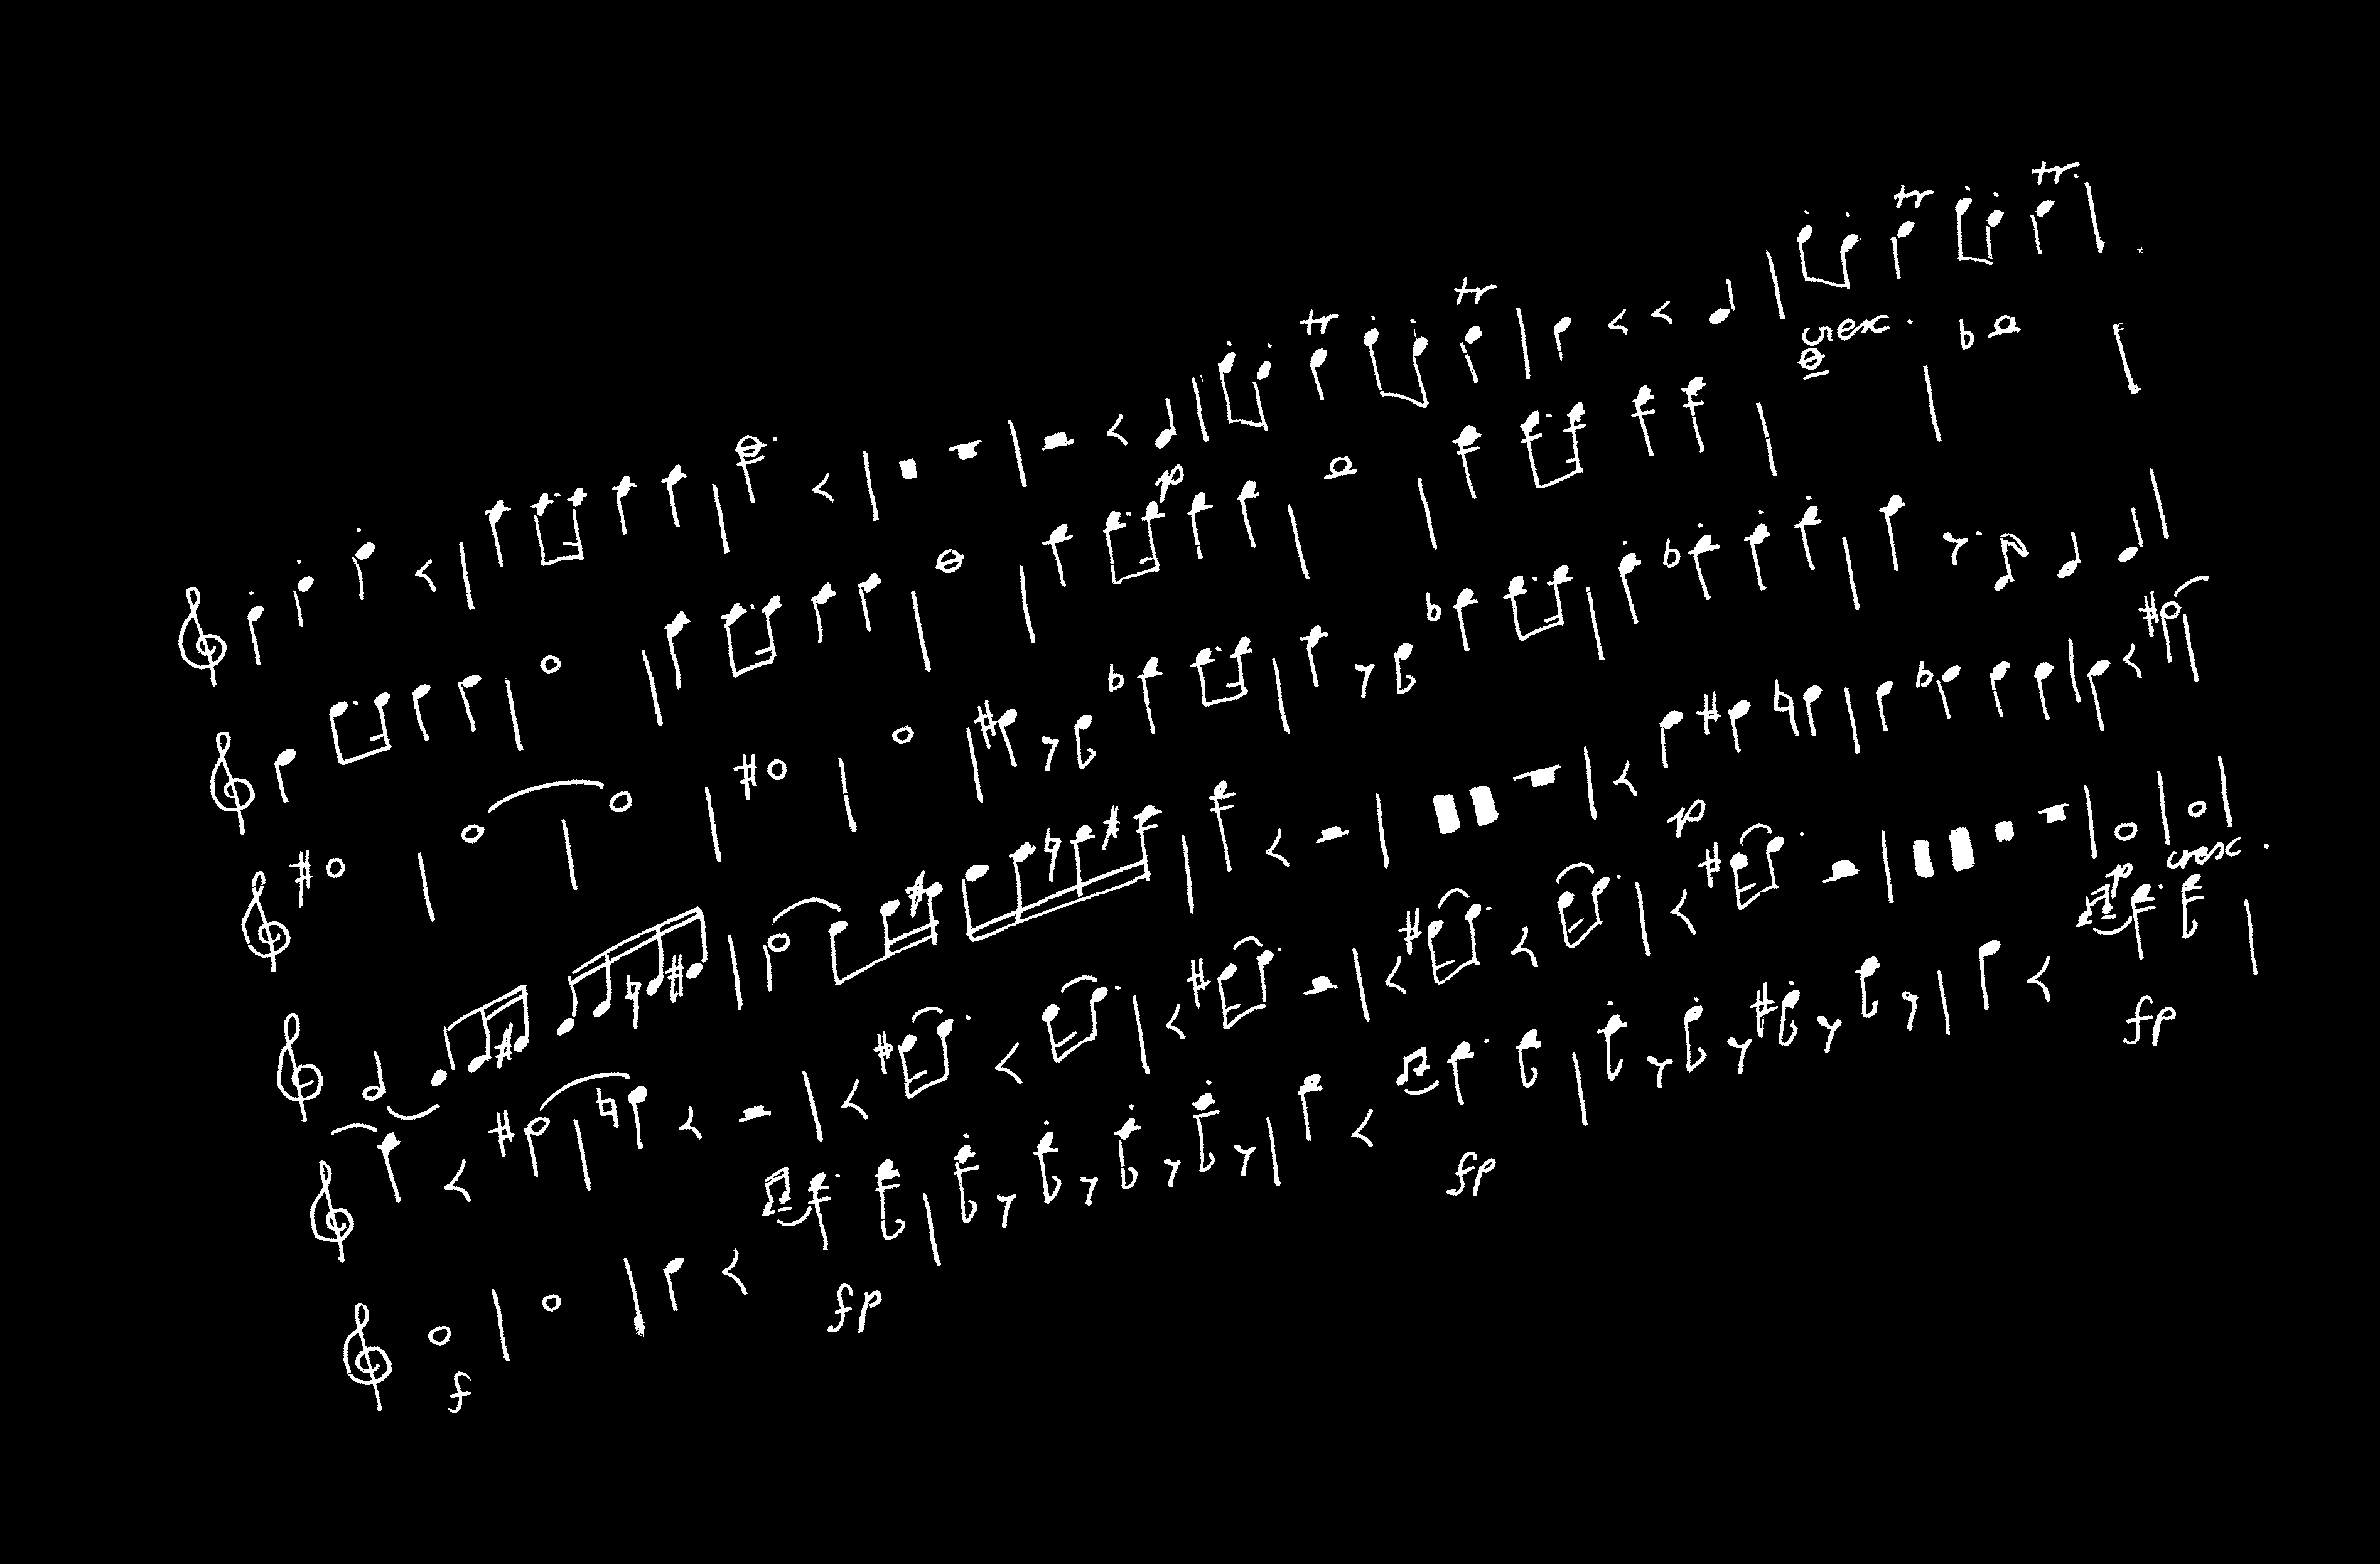 tr tr tr tr.
p cresc.
p
p cresc.
fp fp
f fp